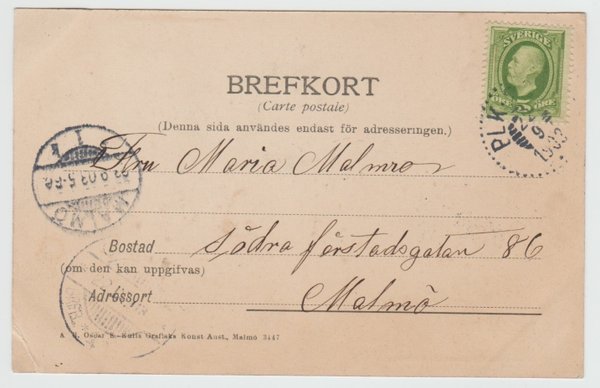 SVERIGE
5
ÖRE ÖRE
BREFKORT
(Carte postale)
(Denna sida användes endast för adresseringen.)
PLK
22
9
1903
1 K
22.9.03.5-6E.
MALMÖ
Fru Maria Malmros
Bostad Södra förstadsgatan 86
(om den kan uppgifvas)
Adressort Malmö
Oscar S. Kulls Grafiska Konst Anst., Malmö 3447